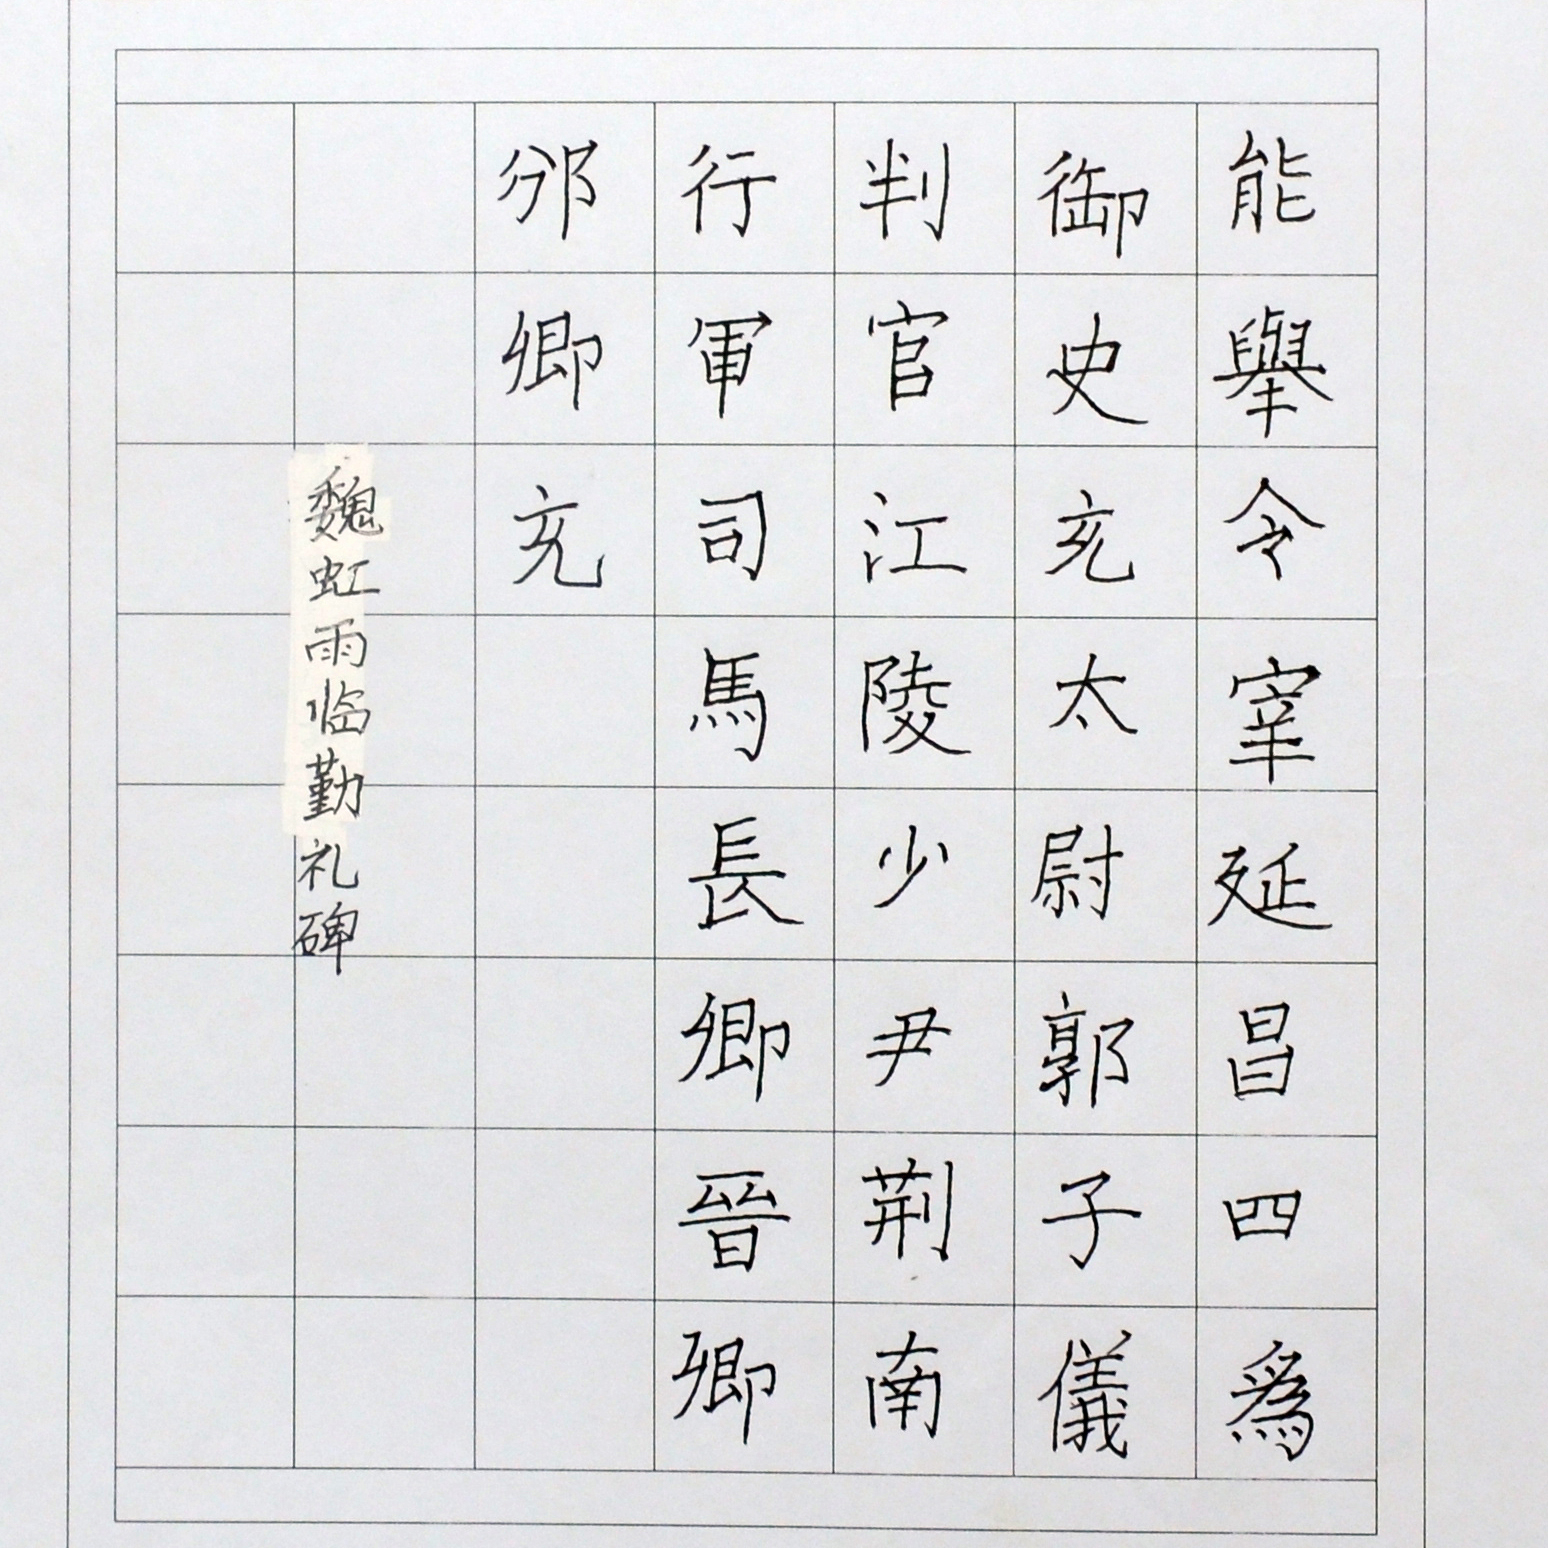 能舉令宰延昌四爲
御史充太尉郭子儀
判官江陵少尹荆南
行軍司馬長卿晉卿
邠卿充
魏虹雨临勤礼碑